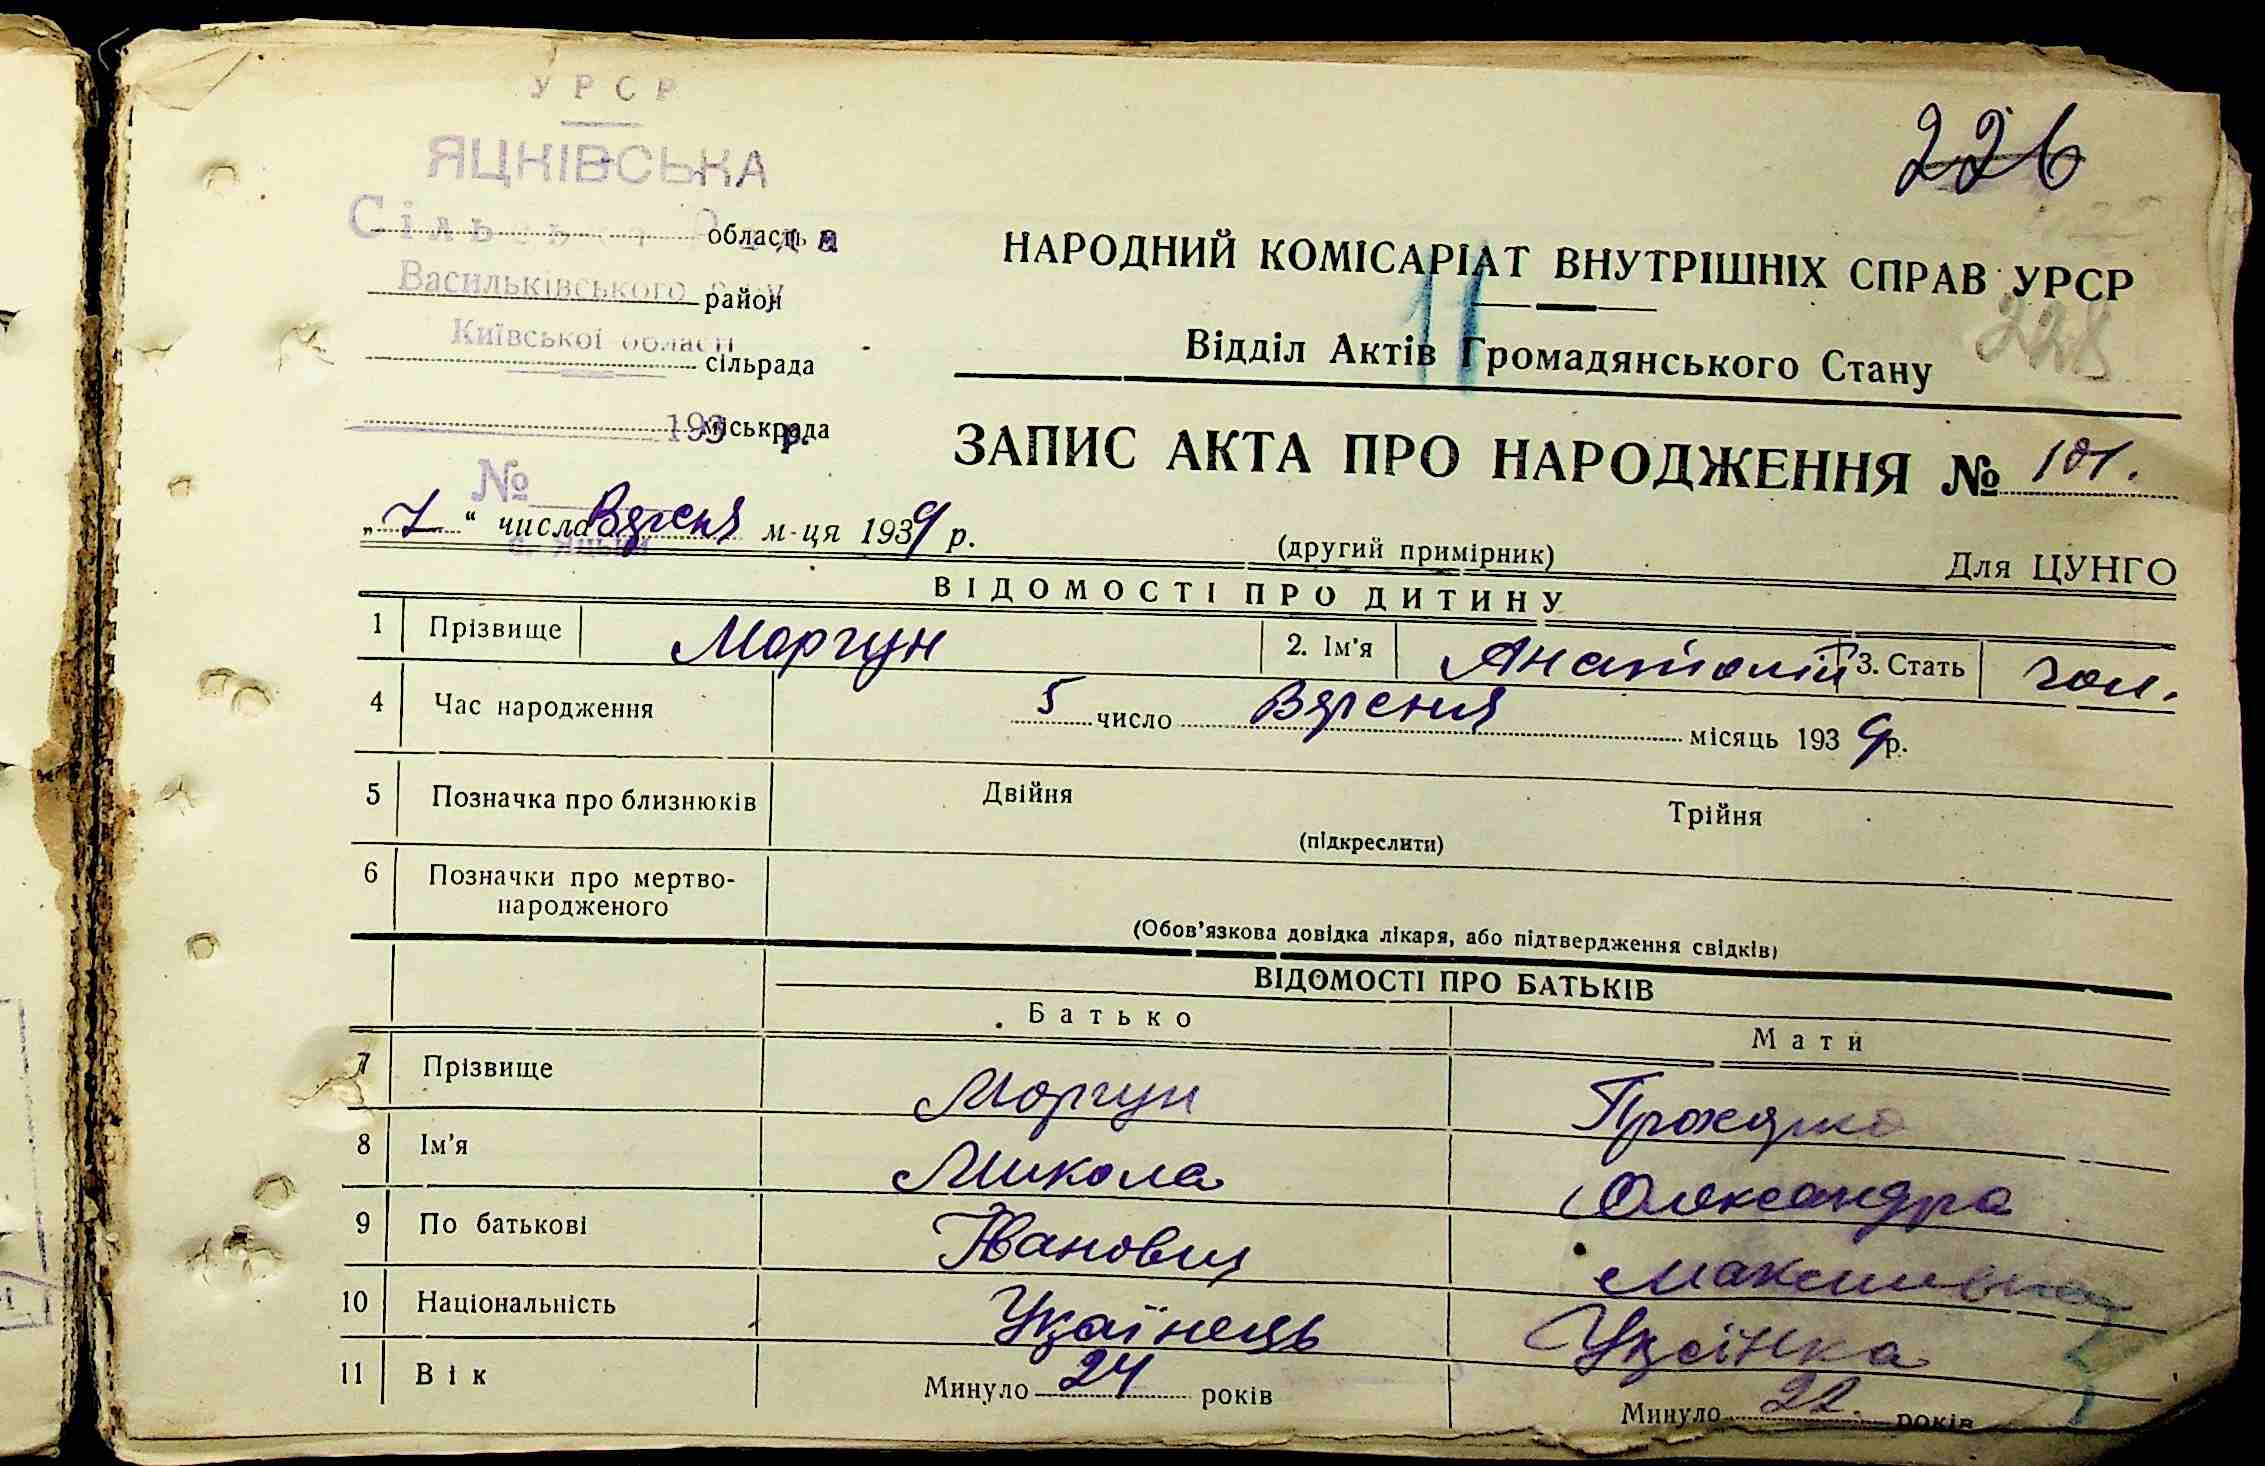 УРСР
ЯЦКІВСЬКА
Сільська Рада
область
Васильківського р-ну
район
Київської області
сільрада
193 р.
міськрада
№
с. Яцьки
226
228
НАРОДНИЙ КОМІСАРІАТ ВНУТРІШНІХ СПРАВ УРСР
11
Відділ Актів Громадянського Стану
ЗАПИС АКТА ПРО НАРОДЖЕННЯ № 101.
„7“ числа Вересня м-ця 1939 р.
(другий примірник) Для ЦУНГО
ВІДОМОСТІ ПРО ДИТИНУ
1 Прізвище Моргун 2. Ім'я Анатолій 3. Стать чол.
4 Час народження 5 число Вересня місяць 1939 р.
5 Позначка про близнюків Двійня Трійня
(підкреслити)
6 Позначки про мертво-
народженого
(Обов'язкова довідка лікаря, або підтвердження свідків)
ВІДОМОСТІ ПРО БАТЬКІВ
Батько Мати
7 Прізвище Моргун
8 Ім'я Микола Олександра
9 По батькові Іванович Максимівна
10 Національність Українець Українка
11 Вік Минуло 24 років Минуло 22 років